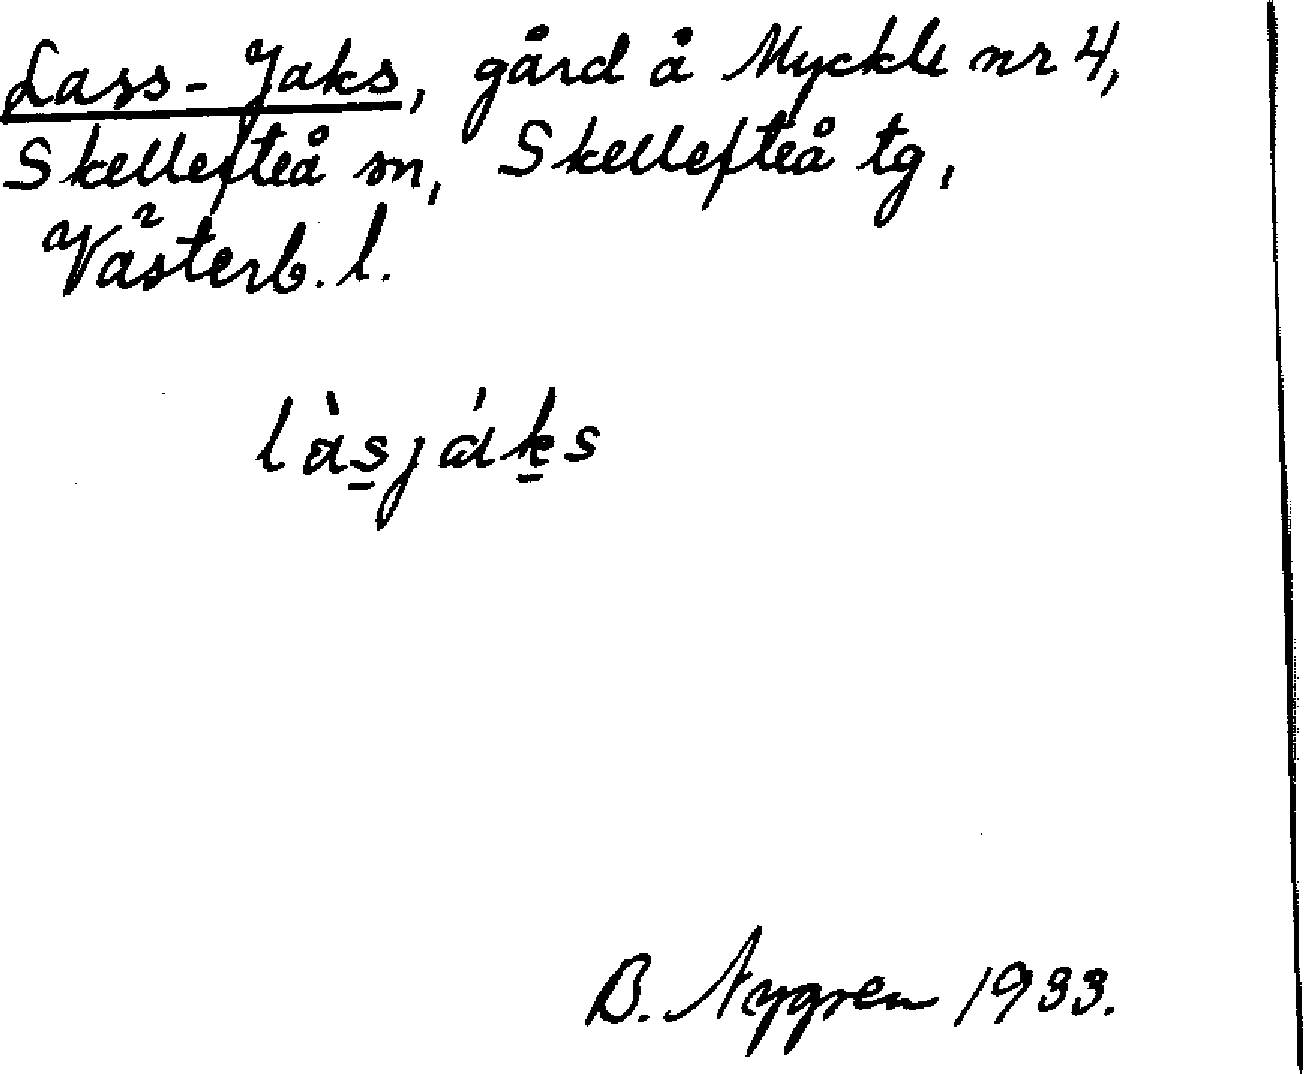 Lass-Jaks, gård å Myckle nr 4,
Skellefteå sn, Skellefteå tg,
Västerb. l.
làs̱jáḵs
B. Nygren 1933.